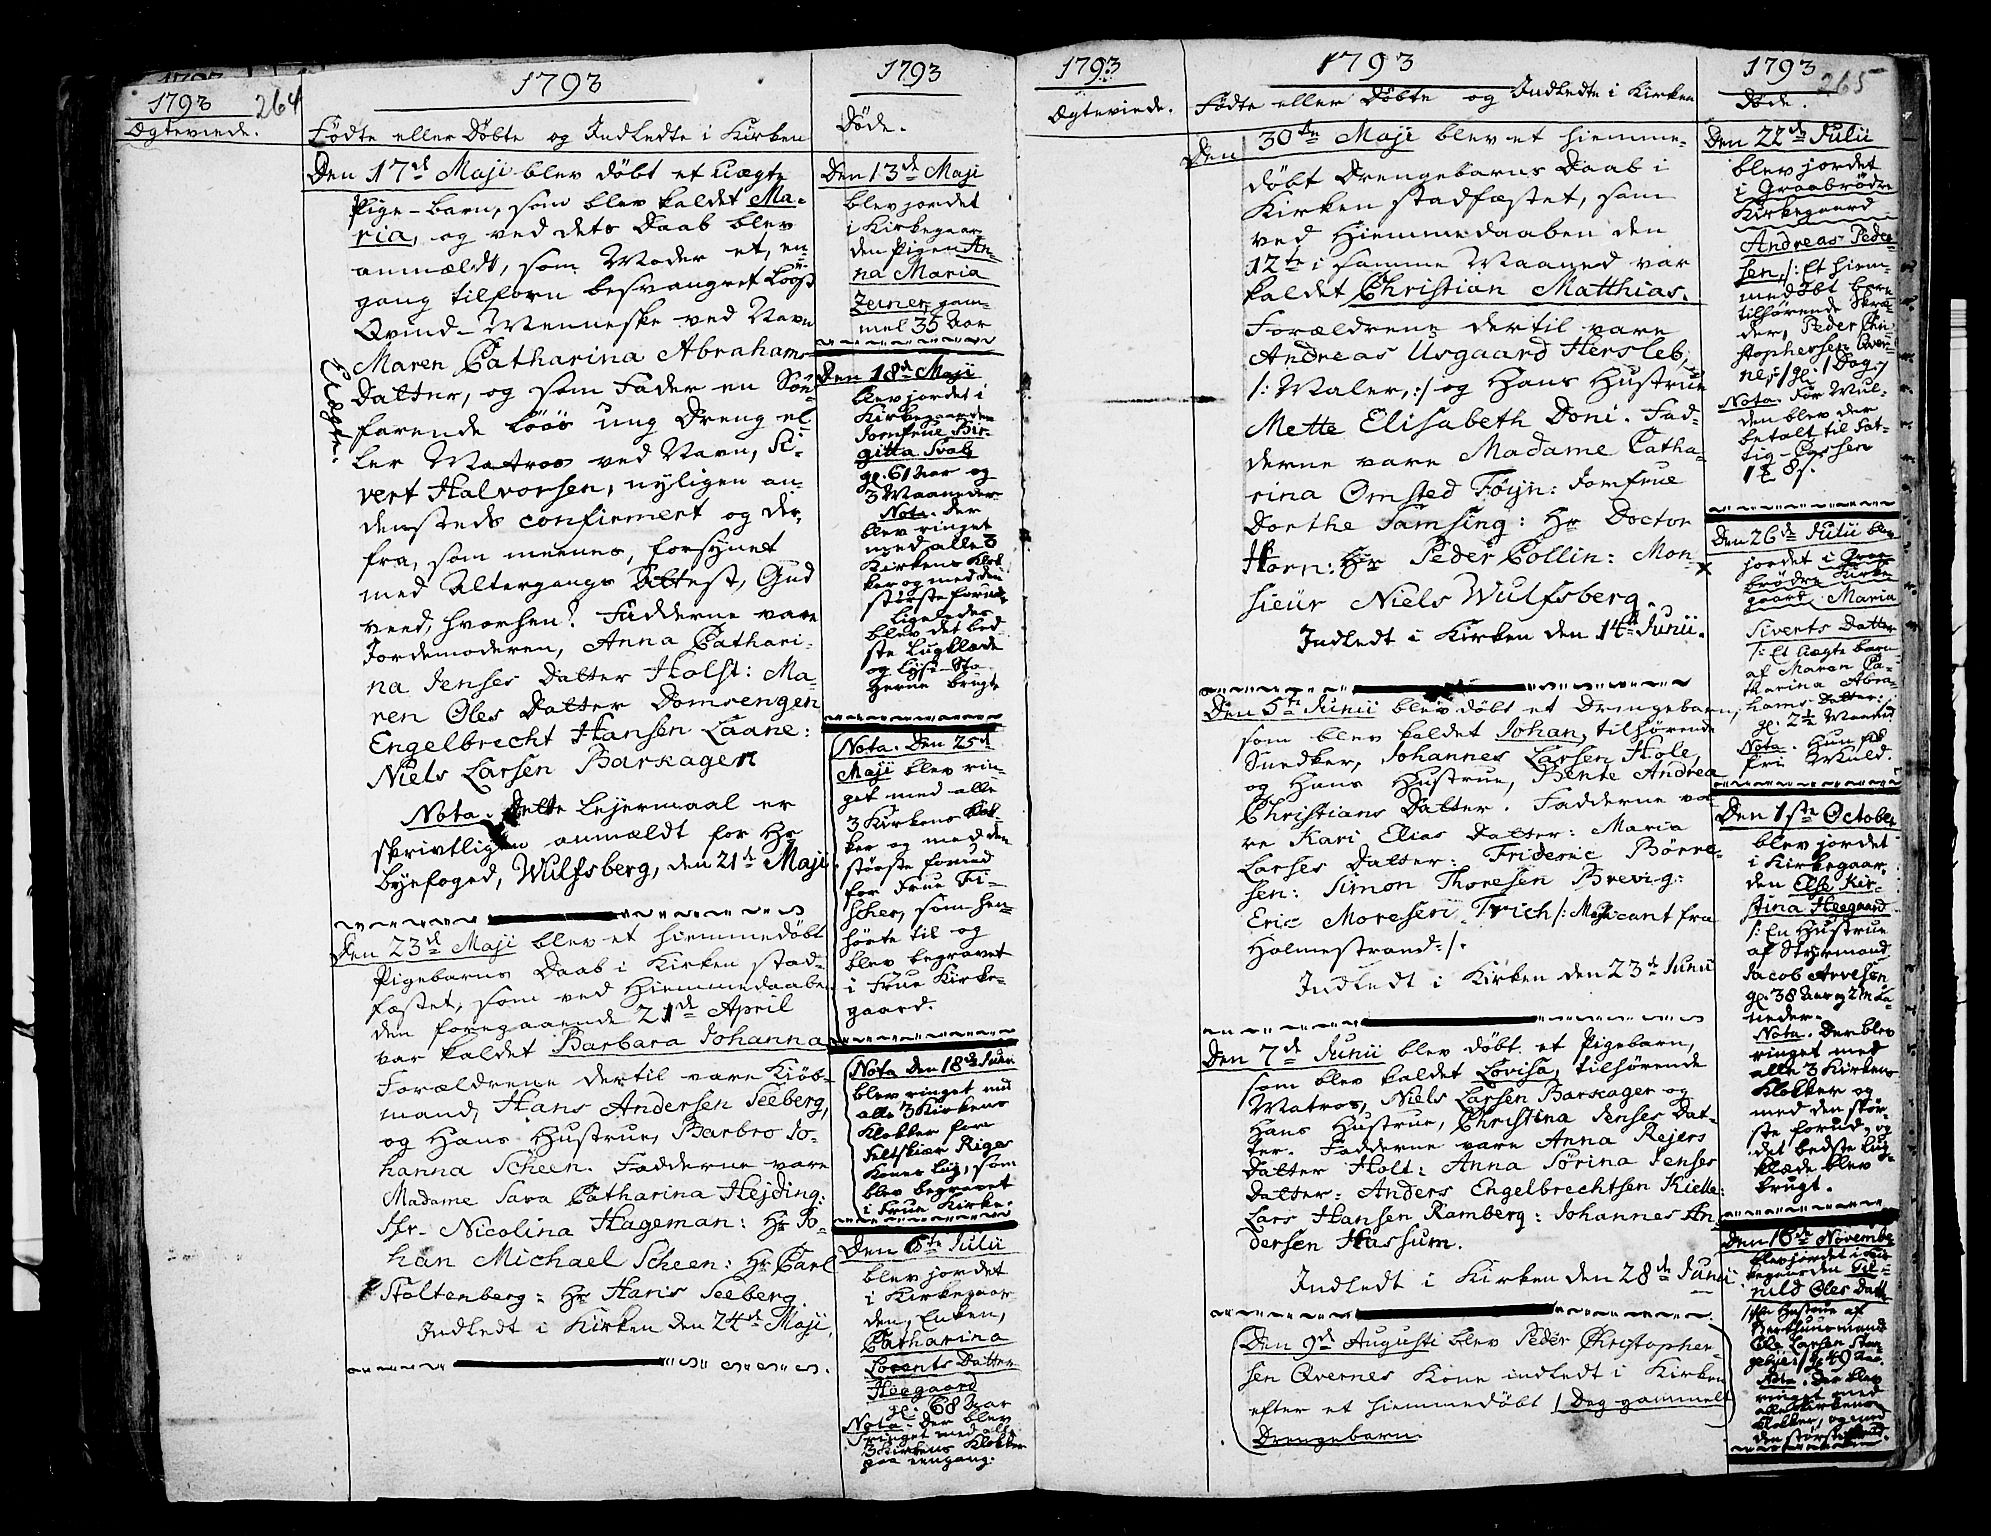 1793
264
Ægteviede.
1793
Fødte eller Døbte og Indledte i Kirken
Den 17de Maji blev døbt et Uægte
Pige-barn, som blev kaldet Ma-
ria, og ved dets Daab blev
anmældt, som Moder et, en-
gang tilforn besvangret Løøs
Qvind-Menneske ved Navn
Maren Catharina Abrahams
Datter, og som Fader en Søe-
farende løøs ung Dreng el-
ler Matros ved Navn, Si-
vert Halvorsen, nyligen an-
densteds confirmert og der-
fra, som meenes, forsynet
med Altergangs Attest, Gud
veed, hvorhen? Fadderne vare
Jordemoderen, Anna Cathari-
na Jenses Datter Holst: Ma-
ren Oles Datter Domsengen
Engelbrecht Hansen Laane:
Niels Larsen Barkager
Uægte.
Nota. Dette Lejermaal er
skrivtligen anmældt for Hr
Byefoged, Wulfsberg, den 21de Maji.
Den 23de Maji blev et hiemmedøbt
Pigebarns Daab i Kirken stad-
fæstet, som ved Hiemmedaaben
den foregaaende 21de April
var kaldet Barbara Johanna
Forældrene dertil vare Kiøb-
mand, Hans Andersen Seeberg,
og Hans Hustrue, Barbro Jo-
hanna Scheen. Fadderne vare
Madame Sara Catharina Hejding:
Jfr. Nicolina Hageman: Hr Jo-
han Michael Scheen: Hr Carl
Stoltenberg: Hr Haris Seeberg
Indledt i Kirken den 24de Maji.
1793
Døde.
Den 13de Maji
blev jordet
i Kirkegaar-
den Pigen An-
na Maria
Zeiner, gam-
mel 35 Aar
Den 18de Maji
blev jordet i
Kirkegaarden
Jomfrue Bir-
gitta Svab
gl. 61 Aar og
3 Maaneder
Nota. Der
blev ringet
med alle 3
Kirkens Klok-
ker og med den
største forud.
Ligeledes
blev det bed-
ste Liigklæde
og Lyse-Sta-
gerne brugte
Nota. Den 25de
Maji blev rin-
get med alle
3 Kirkens Klok-
ker og med den
største forud
for Frue Fi-
scher, som hen-
hørte til og
blev begravet
i Frue Kirke-
gaard.
Nota Den 18de Junii
blev ringet med
alle 3 Kirkens
Klokker for
Feltskiær Riges
Kones Liig, som
blev begravet
i Frue Kirke.
Den 6te Julii
blev jordet
i Kirkegaar-
den, Enken,
Catharina
Lorents Datter
Heegaard
gl. 68 Aar
Nota. Der blev
ringet med alle
3 Kirkens Klokker
paa eengang.
1793
Ægteviede.
1793
Fødte eller Døbte og Indledte i Kirken
Den 30te Maji blev et hiemme-
døbt Drengebarns Daab i
Kirken stadfæstet, som
ved Hiemmedaaben den
12te i samme Maaned var
kaldet Christian Matthias.
Forældrene dertil vare
Andreas Usgaard Hersleb,
/: Maler, :/ og Hans Hustrue
Mette Elisabeth Doni. Fad-
derne vare Madame Catha-
rina Omsted Føyn: Jomfrue
Dorthe Samsing: Hr Doctor
Horn: Hr Peder Collin: Mon-
sieur Niels Wulfsberg.
Indledt i Kirken den 14de Junii.
Den 5te Junii blev døbt et Drengebarn,
som blev kaldet Johan, tilhørende
Snedker, Johannes Larsen Hole,
og Hans Hustrue, Bente Andrea
Christians Datter. Fadderne va-
re Kari Elias Datter: Maria
Larses Datter: Frideric Børre-
sen: Simon Thoresen Brevig:
Eric Moresen Trich /: Musicant fra
Holmestrand: /.
Indledt i Kirken den 23de Junii
Den 7de Junii blev døbt et Pigebarn,
som blev kaldet Lovisa, tilhørende
Matros, Niels Larsen Barkager og
Hans Hustrue, Christina Jenses Dat-
ter. Fadderne vare Anna Rejers
Datter Holt: Anna Sørina Jenses
Datter: Anders Engelbrechtsen Kielle:
Lars Hansen Ramberg: Johannes An-
dersen Hassum.
Indledt i Kirken den 28de Junii
Den 9de Augusti blev Peder Christopher-
sen Qvernes Kone indledt i Kirken
efter et hiemmedøbt 1 Dag gammelt
Drengebarn.
1793
265
Døde.
Den 22de Julii
blev jordet
i Graabrødre
Kirkegaard
Andreas Peder-
sen, /: Et hiem-
medøbt barn
tilhørende Skræ-
der, Peder Chri-
stophersen Qver-
nes :/ gl. 1 Dag.
Nota. For Mul-
den blev der
betalt til Fat-
tig-Cassen
8 s.
Den 26de Julii blev
jordet i Graa-
brødre Kirke-
gaard Maria
Siverts Datter
/: Et Uægte barn
af Maren Ca-
tharina Abra-
hams Datter :/
gl. 2½ Maaned
Nota. Hun fik
fri Muld.
Den 1ste October
blev jordet
i Kirkegaar-
den Else Kir-
stina Heegaard
/: En Hustrue
af Styrmand
Jacob Arvesen
gl. 38 Aar og 2 Maa-
neder.
Nota. Der blev
ringet med
alle 3 Kirkens
Klokker og
med den stør-
ste forud, og
det bedste Liig-
klæde blev
brugt.
Den 16de November
blev jordet i Kir-
kegaarden
Oles Datter
Hustrue af
Ole Larsen
gl. 49 Aar.
Nota. Der blev
ringet med
alle Kirkens
Klokker, og med
den største forud.